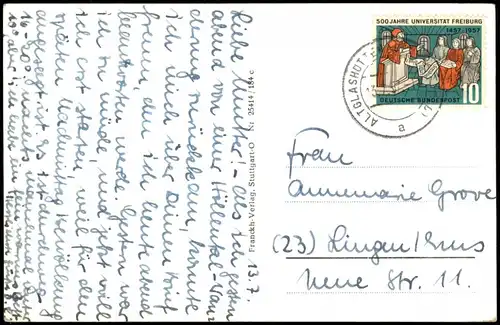 13.7.
Liebe Mutter! – Als ich gestern
abend von einer Höllental-Wan-
derung zurückkam, konnte
ich mich über Deinen Brief
freuen, den ich heute abend
beantworten werde. Gestern war
ich zu müde, und jetzt will
ich erst starten, weil für den
späten Nachmittag Bewölkung
angesagt ist.
Franckh-Verlag, Stuttgart-O Nr. 25414 / 184 c
500 JAHRE UNIVERSITÄT FREIBURG
1457-1957
DEUTSCHE BUNDESPOST
10
ALTGLASHÜTTE
a
Frau
Annemarie Grove
(23) Lingen/Ems
Neue Str. 11.